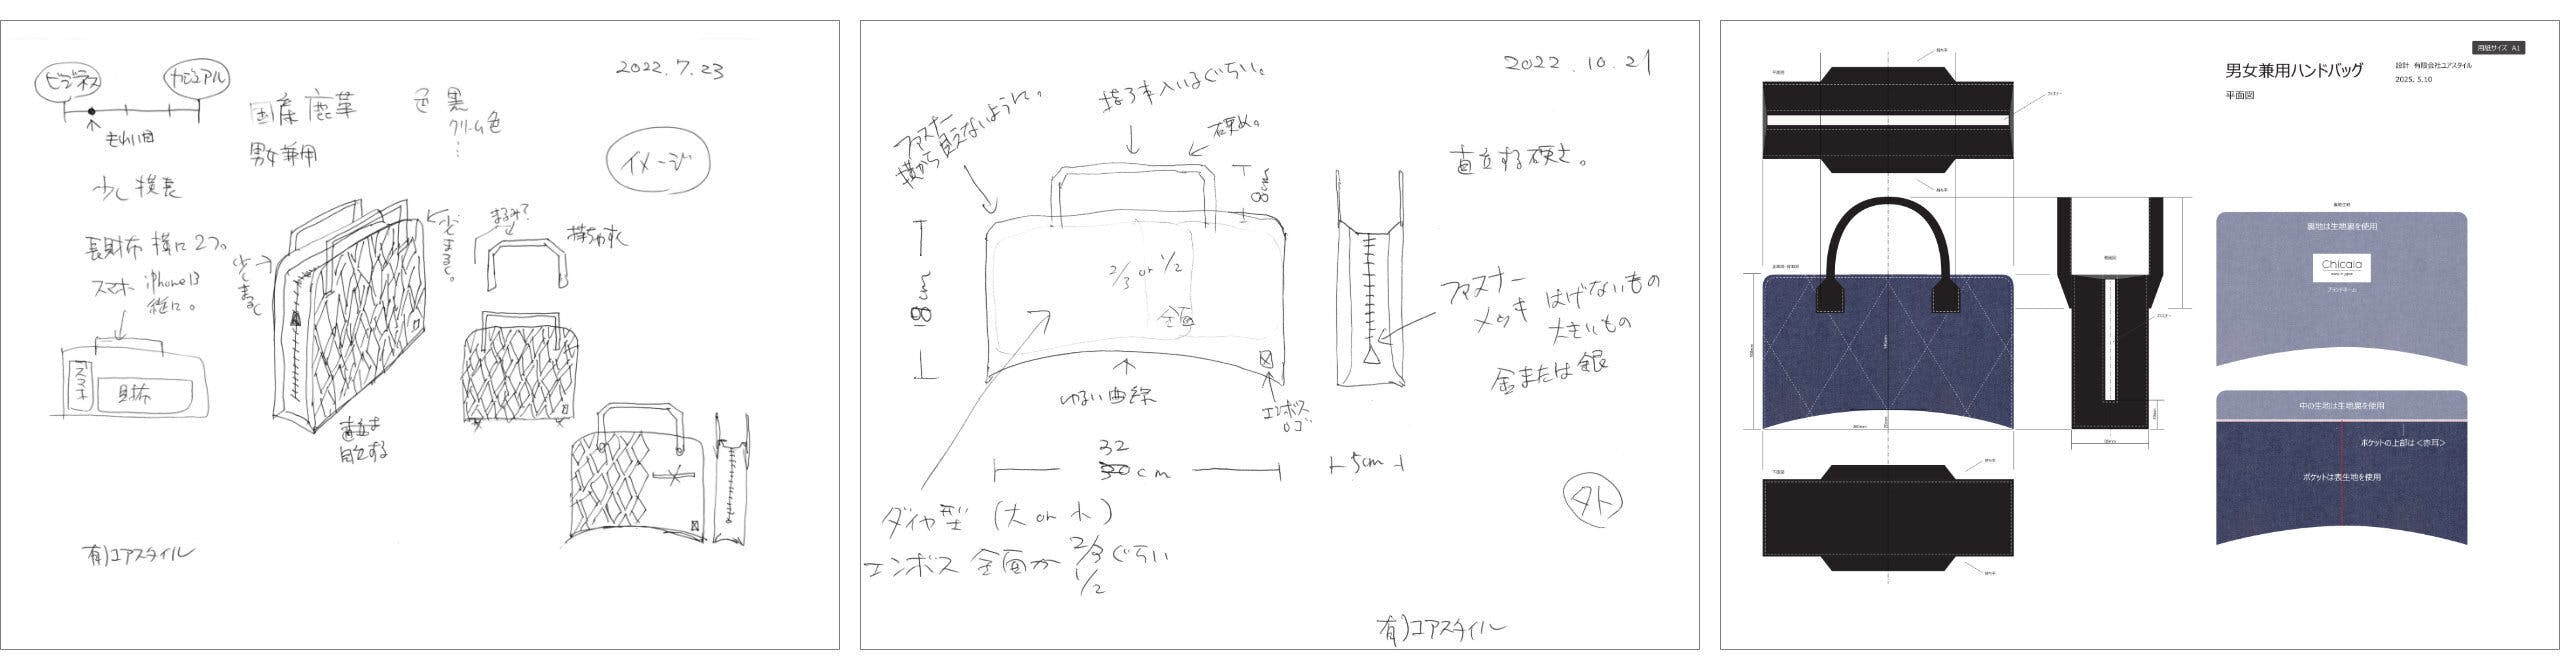 ビジネス
カジュアル
2022.7.23
国産鹿革
色 黒
クリーム色
男女兼用
イメージ
少し横長
長財布 横に2つ。
スマホ iPhone13
縦に。
少しまるく
少しまるく。
まるみ?
持ちやすく
スマホ
財布
直立は
自立する
有)ユアスタイル
2022.10.21
ファスナー
横から見えないように。
指3本入いるぐらい。
硬め。
8cm
直立する硬さ。
18cm
2/3 or 1/2
全面
ファスナー
メッキ はげないもの
大きいもの
金または銀
ゆるい曲線
エンボス
ロゴ
32
30cm
5cm
外
ダイヤ型 (大 or 小)
エンボス 全面か 2/3ぐらい
1/2
有)ユアスタイル
用紙サイズ A1
男女兼用ハンドバッグ
設計 有限会社ユアスタイル
2025. 5.10
平面図
平面図
持ち手
ファスナー
持ち手
裏地は生地裏を使用
Chicala
ブランドネーム
中の生地は生地裏を使用
ポケットの上部は<赤耳>
ポケットは表生地を使用
下面図
持ち手
持ち手